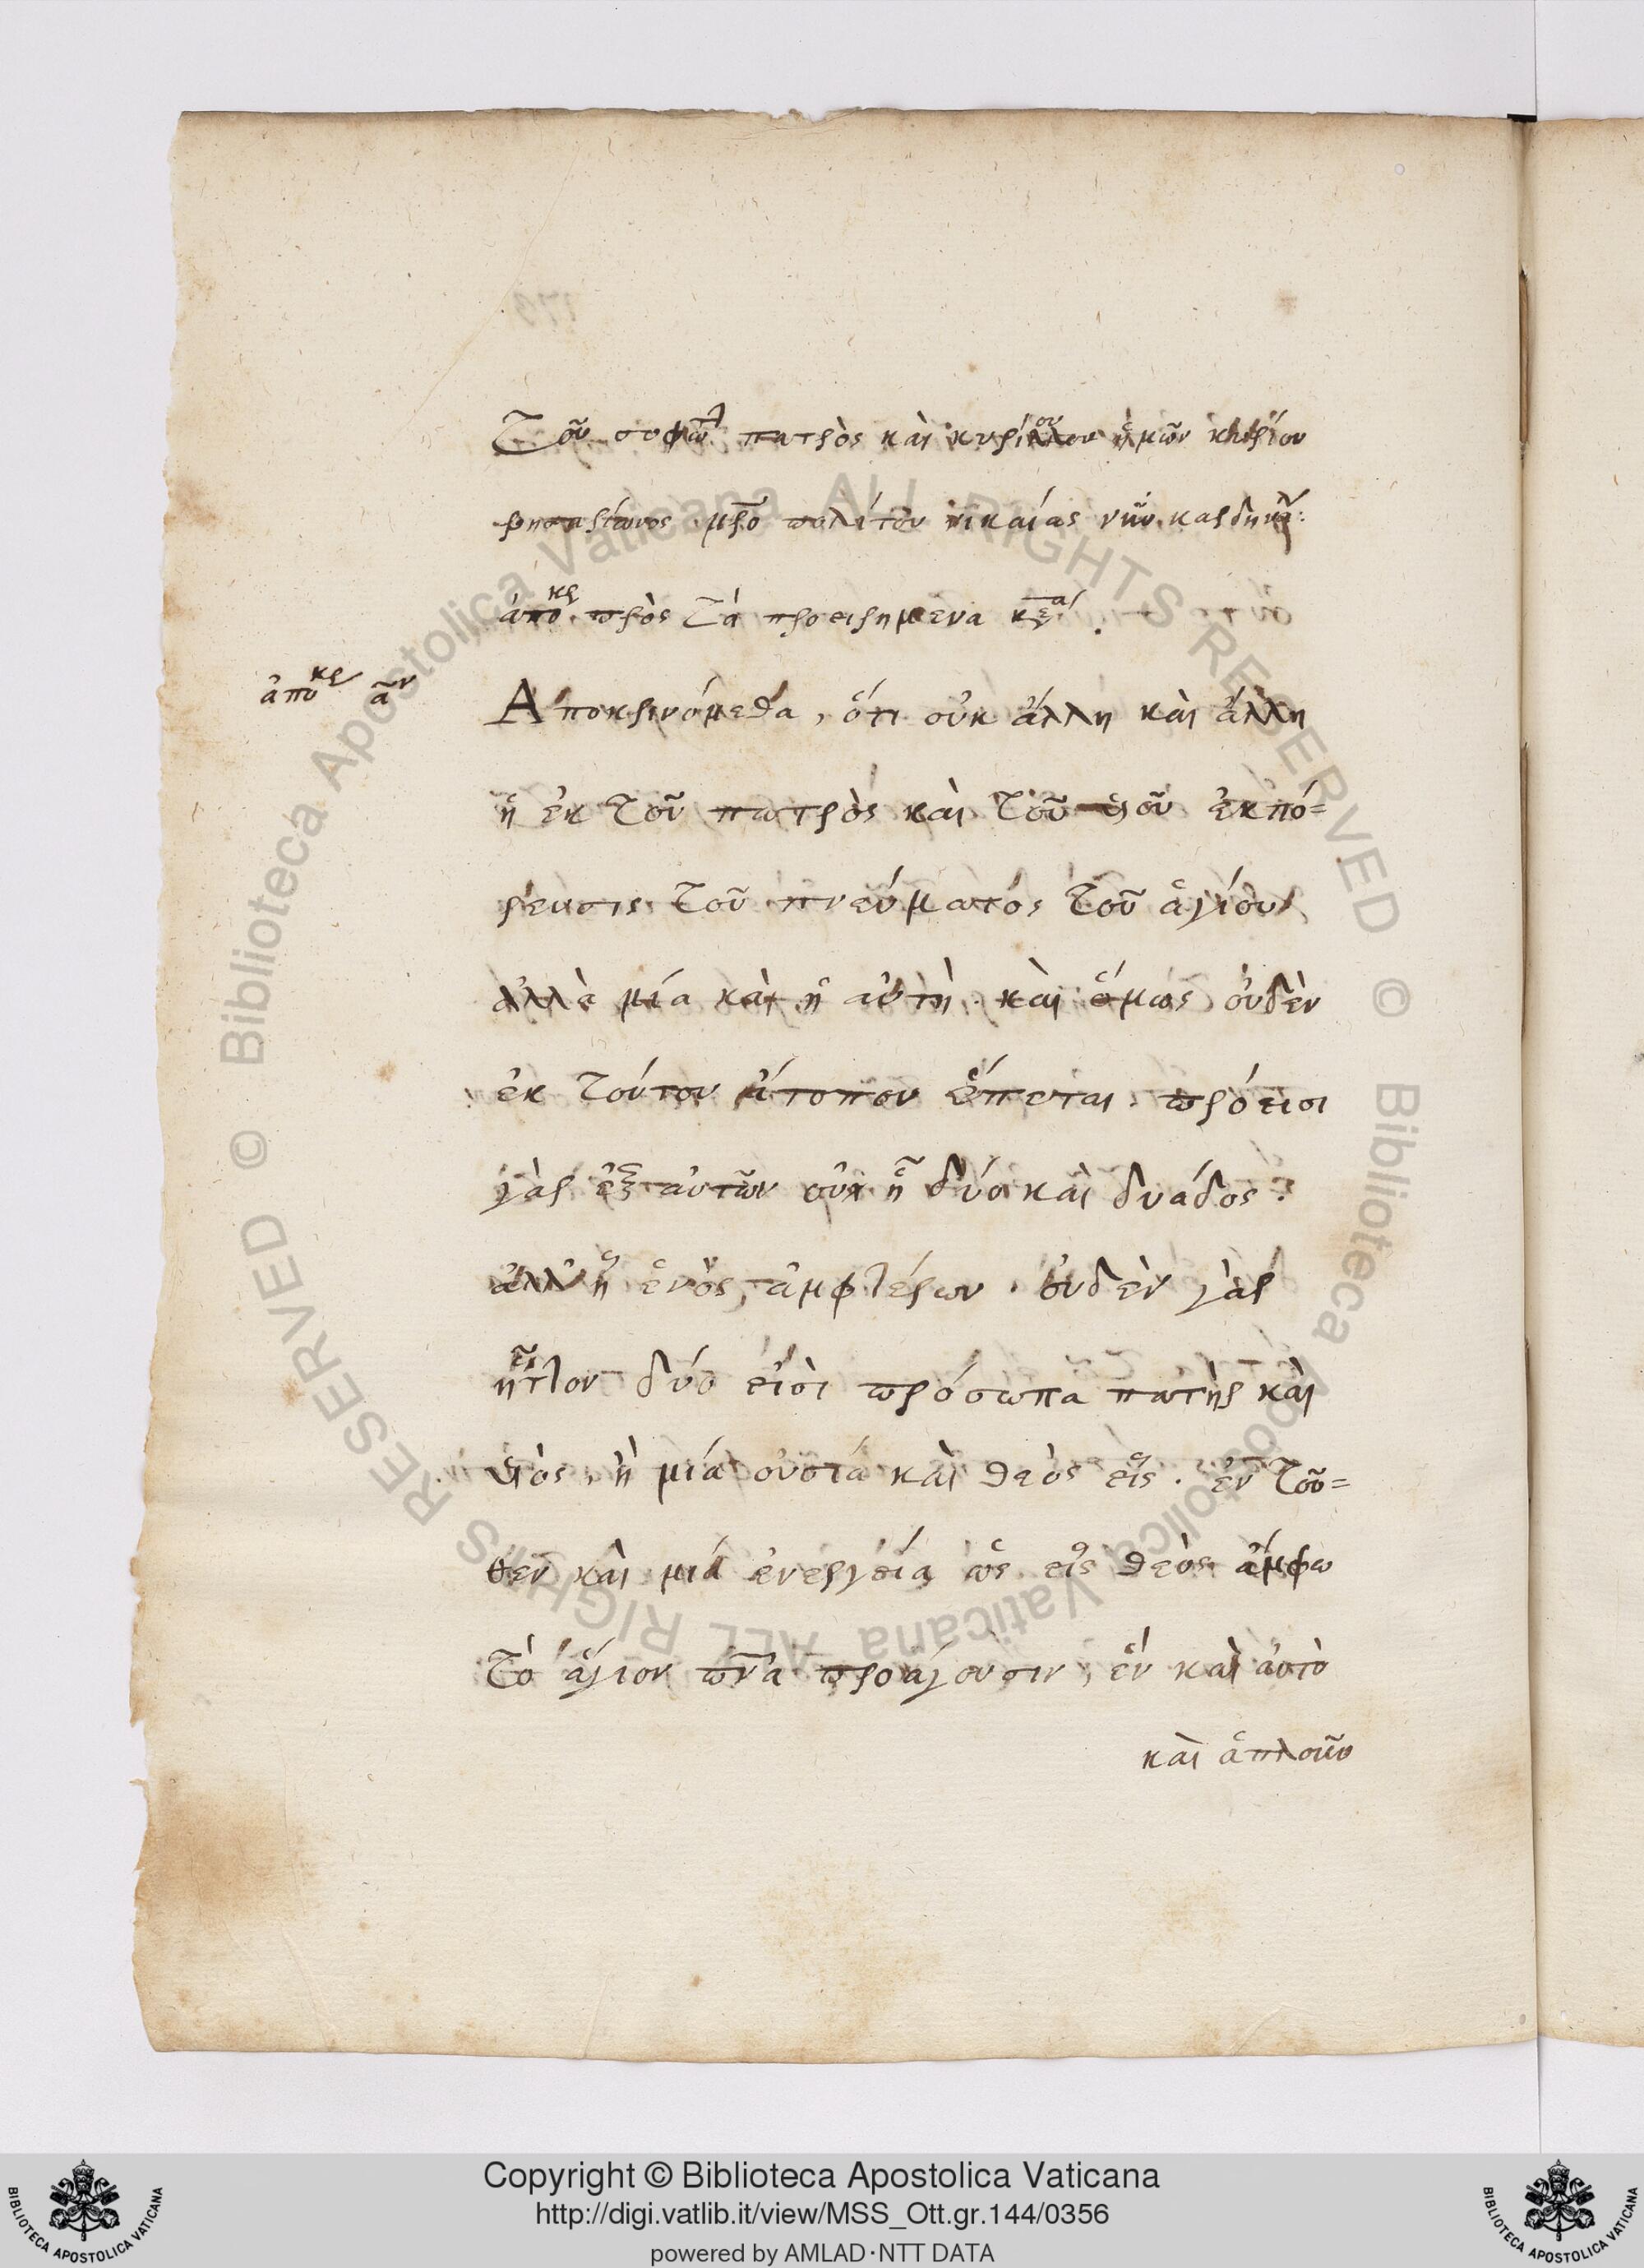 Τοῦ σοφω̅τ πατρὸς καὶ κυρίου ἡμῶν κυρίου
βησαρίωνος μρ̅ο πολίτου νικαίας νῦν καρδηνα:
ἀποκρ πρὸς τὰ προειρημενα κεα .
ἀποκρ ᾶν
Αποκρινόμεθα, ὅτι οὐκ ἄλλη καὶ ἄλλη
ἡ ἐκ τοῦ πατρὸς καὶ τοῦ υἱοῦ ἐκπό=
ρευσις τοῦ πνεύματός τοῦ ἁγίου
ἀλλὰ μία καὶ ἡ αὐτὴ. καὶ ὅμως οὐδὲν
ἐκ τούτου ἄτοπον ἕπεται. πρόεισι
γὰρ ἐξ αὐτῶν οὐχ ᾗ δύο καὶ δυάδος.
ἀλλ' ᾗ ἑνὸς ἀμφτέρων . οὐδὲν γὰρ
ἧττον δύο εἰσὶ πρόσωπα πατὴρ καὶ
υἱὸς, ἢ μία οὐσία καὶ θεὸς εἷς. ἐν τοῦ=
θεν καὶ μιᾶ ἐνεργεία ὡς εἷς θεὸς ἄμφω
τὸ ἅγιον πν̅α προάγουσιν, ἓν καὶ αὐτὸ
καὶ ἁπλοῦν
Copyright © Biblioteca Apostolica Vaticana
http://digi.vatlib.it/view/MSS_Ott.gr.144/0356
powered by AMLAD·NTT DATA
BIBLIOTECA APOSTOLICA VATICANA
BIBLIOTECA APOSTOLICA VATICANA
© Biblioteca Apostolica Vaticana ALL RIGHTS RESERVED © Biblioteca Apostolica Vaticana ALL RIGHTS RESERVED